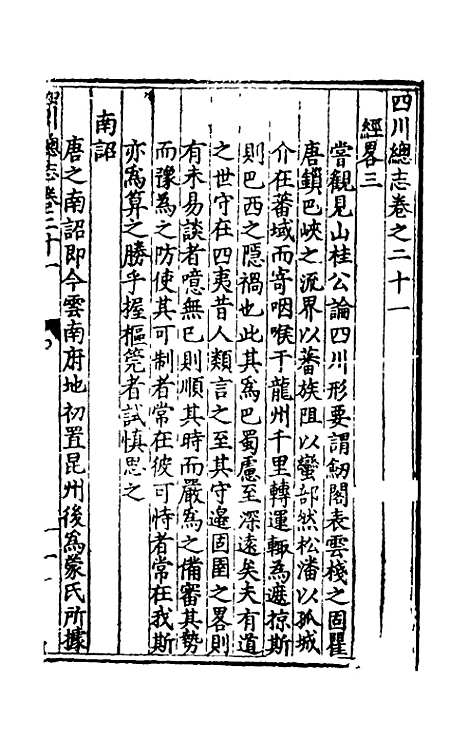 四川總志卷之二十一
經畧三
嘗觀見山桂公論四川形要謂劒閣表雲棧之固瞿
唐鎖巴峽之流界以蕃族阻以蠻部然松潘以孤城
介在蕃域而寄咽喉于龍州千里轉運輙為遮掠斯
則巴西之隱禍也此其為巴蜀慮至深遠矣夫有道
之世守在四夷昔人類言之至其守邉固圉之畧則
有未易談者噫無已則順其時而嚴為之備審其勢
而豫為之防使其可制者常在彼可恃者常在我斯
亦為算之勝乎握樞筦者試慎思之
南詔
唐之南詔即今雲南府地初置昆州後為蒙氏所據
四川總志卷二十一
一